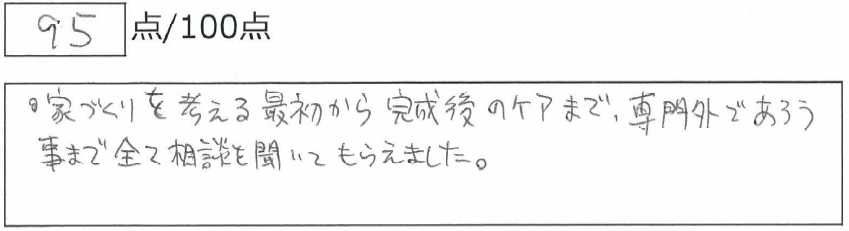 95 点/100点
・家づくりを考える最初から完成後のケアまで、専門外であろう
事まで全て相談を聞いてもらえました。